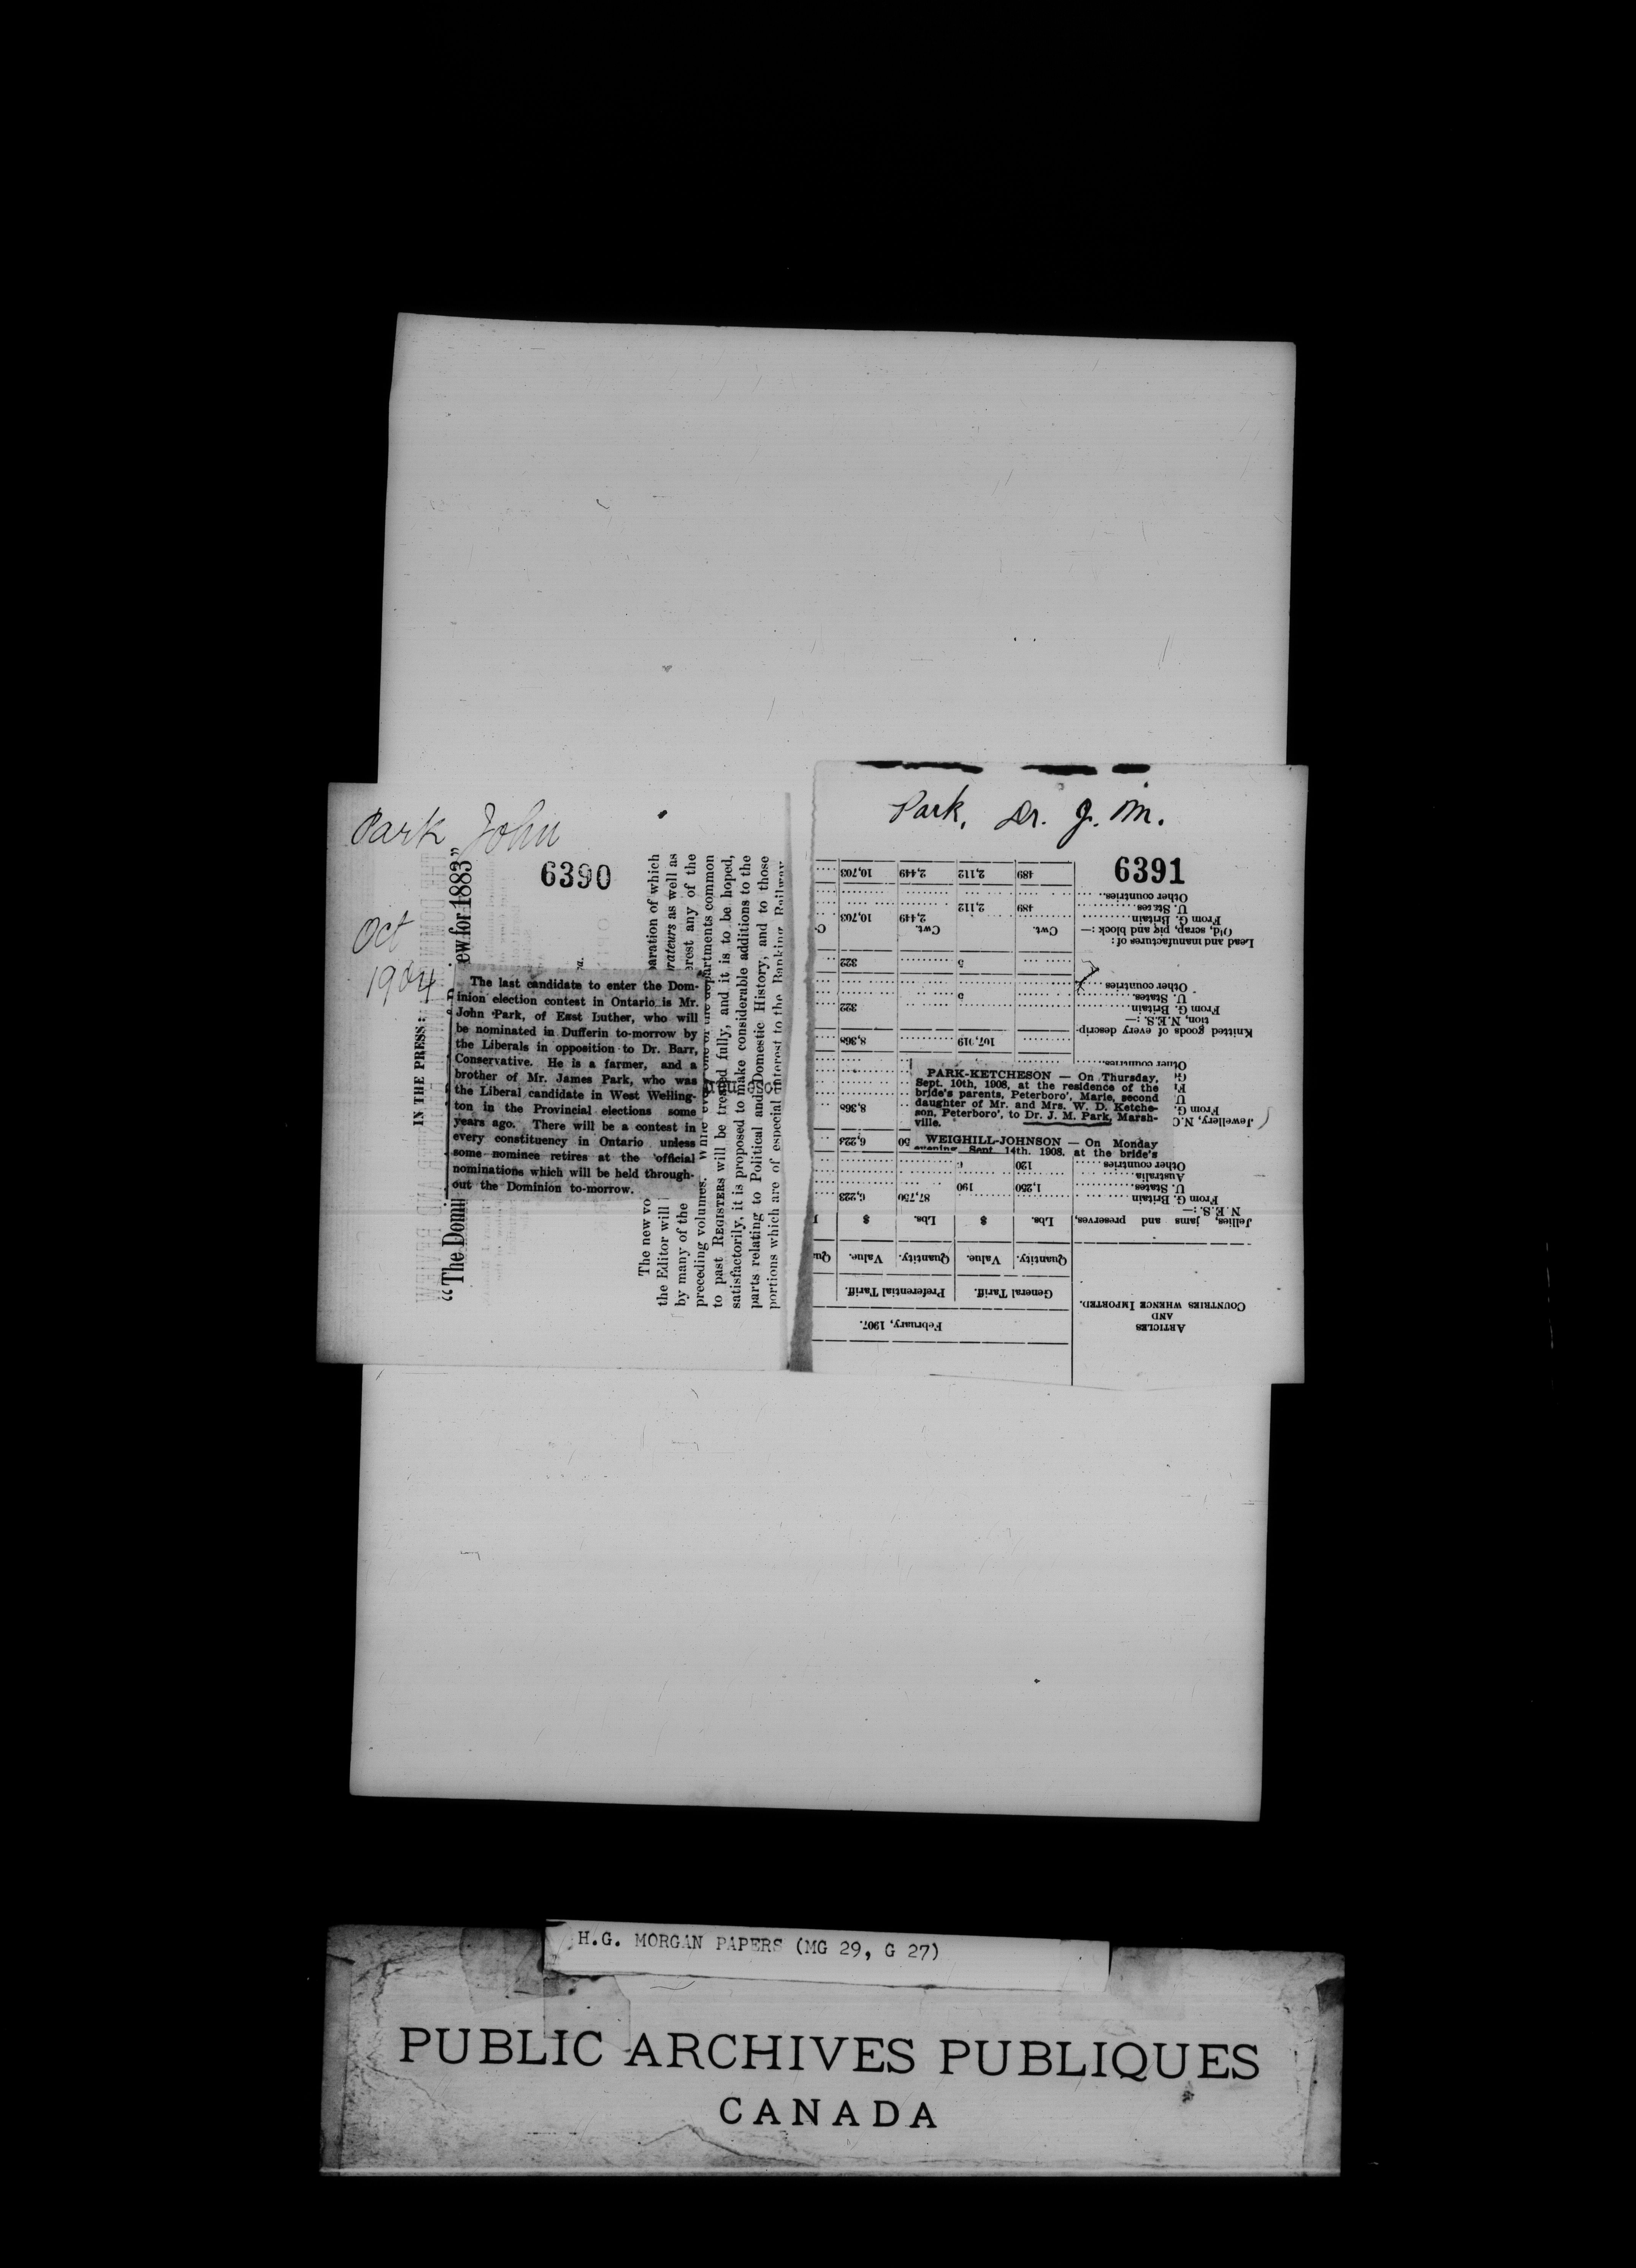 Park John
6390
Oct
1904
The last candidate to enter the Dom-
inion election contest in Ontario is Mr.
John Park, of East Luther, who will
be nominated in Dufferin to-morrow by
the Liberals in opposition to Dr. Barr,
Conservative. He is a farmer, and a
brother of Mr. James Park, who was
the Liberal candidate in West Welling-
ton in the Provincial elections some
years ago. There will be a contest in
every constituency in Ontario unless
some nominee retires at the official
nominations which will be held through-
out the Dominion to-morrow.
IN THE PRESS:
"The Domi
ew for 1883"
The new vo
paration of which
the Editor will
rateurs as well as
by many of the
erest any of the
preceding volumes.
departments common
to past REGISTERS will be treated fully, and it is to be hoped,
satisfactorily, it is proposed to make considerable additions to the
parts relating to Political and Domestic History, and to those
portions which are of especial interest to the Banking, Railway
Park, Dr. J. M.
6391
PARK-KETCHESON — On Thursday,
Sept. 10th, 1908, at the residence of the
bride's parents, Peterboro', Marie, second
daughter of Mr. and Mrs. W. D. Ketche-
son, Peterboro', to Dr. J. M. Park, Marsh-
ville.
WEIGHILL-JOHNSON — On Monday
evening, Sept. 14th, 1908, at the bride's
ARTICLES
AND
COUNTRIES WHENCE IMPORTED.
February, 1907.
General Tariff. Preferential Tariff.
Quantity. Value. Quantity. Value. Qu
Lbs. $ Lbs. $
Jellies, jams and preserves,
N.E.S.:—
From G. Britain 87,750 6,223
U. States 1,250 190
Australia
Other countries 120
50 6,223
Jewellery, N.
From G. 8,368
Other countries
107,019 8,368
Knitted goods of every descrip-
tion, N.E.S.:—
From G. Britain 322
U. States 5
Other countries
5 322
Lead and manufactures of:
Old, scrap, pig and block:— Cwt. Cwt.
From G. Britain 2,449 10,703
U. States 489 2,112
Other countries
489 2,112 2,449 10,703
H.G. MORGAN PAPERS (MG 29, G 27)
PUBLIC ARCHIVES PUBLIQUES
CANADA